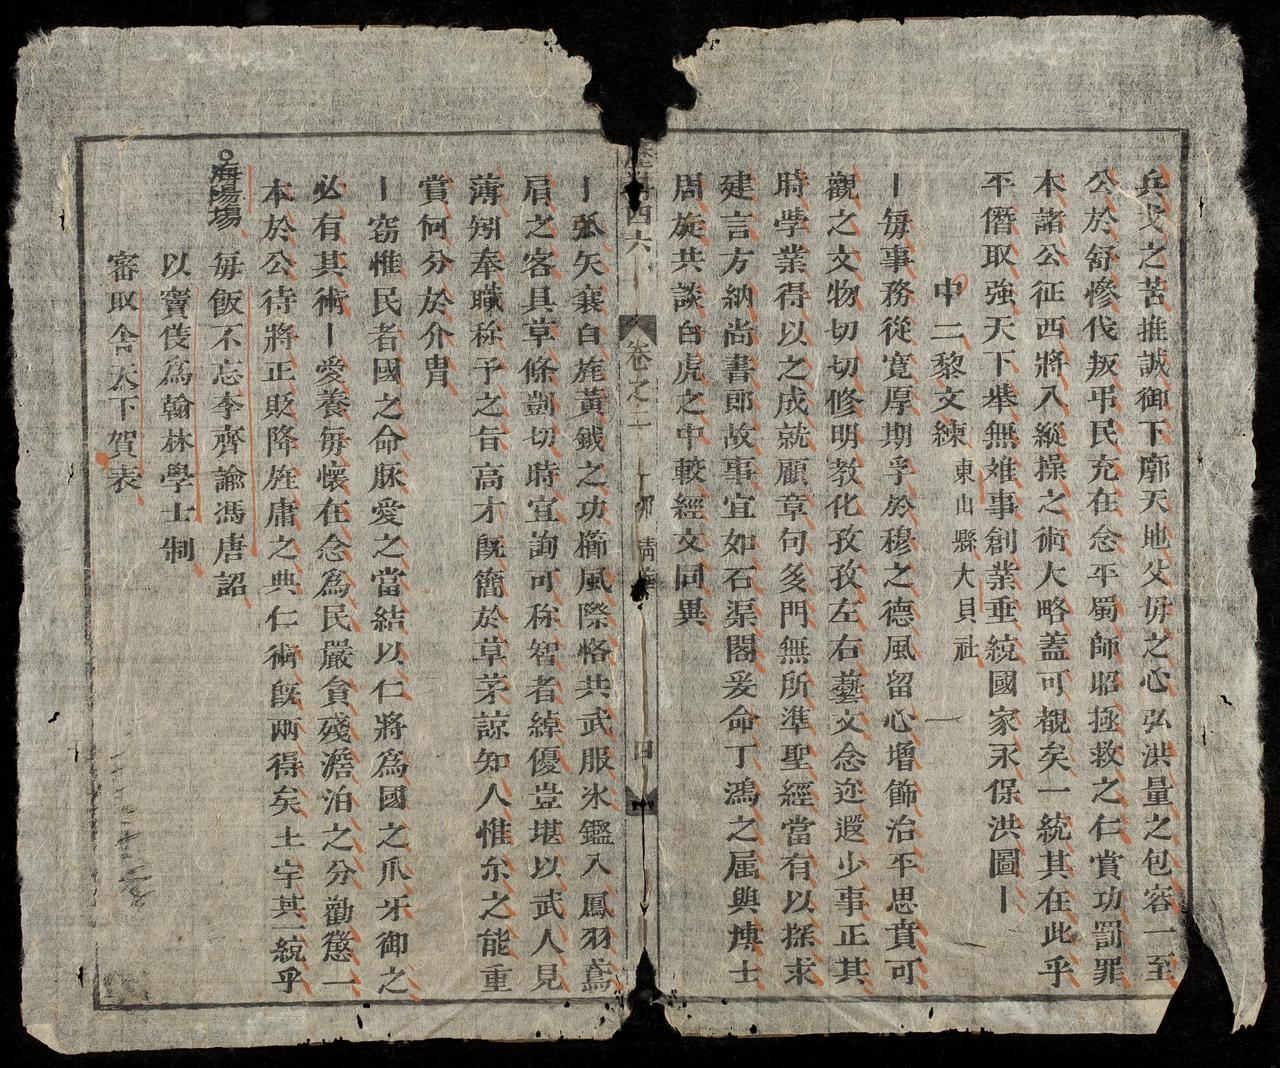 兵戈之苦推誠御下廓天地父毋之心弘洪量之包容一至
公於舒慘伐叛弔民充在念平蜀師昭拯救之仁賞功罰罪
本諸公征西將入縱操之術大略蓋可覩矣一統其在此乎
平僭取強天下举無难事創業垂統國家永保洪圖
中二黎文練 東山縣大貝社
毎事務從寬厚期乎於穆之德風留心增飾治平思賁可
觀之文物切切修明教化孜孜左右藝文念迩遐少事正其
時斈業得以之成就顧章句多門無所準聖經當有以探求
建言方納尚書郎故事宜如石渠閣爰命丁鴻之属與博士
周旋共談白虎之中較經文同異
弧矢襄自旄黃鉞之功櫛風際恪共武服氷鑑入鳳羽鳶
肩之客具草條剴切時宜詢可称智者綽優豈堪以武人見
薄矧奉職称予之旨高才旣簡於草茅諒知人惟尔之能重
賞何分於介冑
窃惟民者國之命脉愛之當結以仁將為國之爪牙御之
必有其術愛養毎懷在念為民嚴貪殘澹泊之分勸懲一
本於公待將正貶降旌庸之典仁術旣兩得矣土宇其一統乎
海陽塲 毎飯不忘李齊諭馮唐詔
以竇儀爲翰林學士制
審取舍天下賀表
歷科四六
卷之二
四